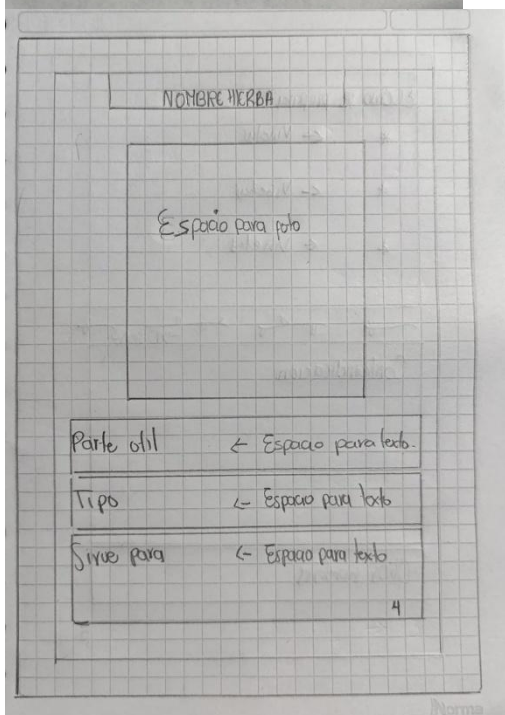 NOMBRE HIERBA
Espacio para foto
Parte util ← Espacio para texto.
Tipo ← Espacio para texto
Sirve para ← Espacio para texto
4
Norma